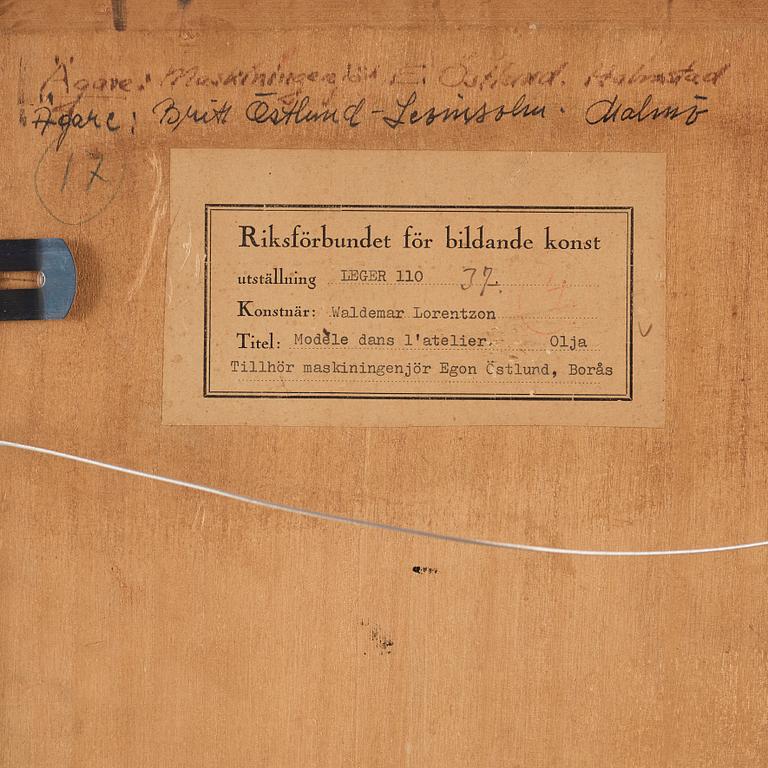 Ägare: Maskiningenjör E. Östlund. Halmstad
Ägare: Britt Östlund-Levinsohn. Malmö
17
Riksförbundet för bildande konst
utställning LEGER 110 37.
Konstnär: Waldemar Lorentzon
Titel: Modèle dans l'atelier. Olja
Tillhör maskiningenjör Egon Östlund, Borås